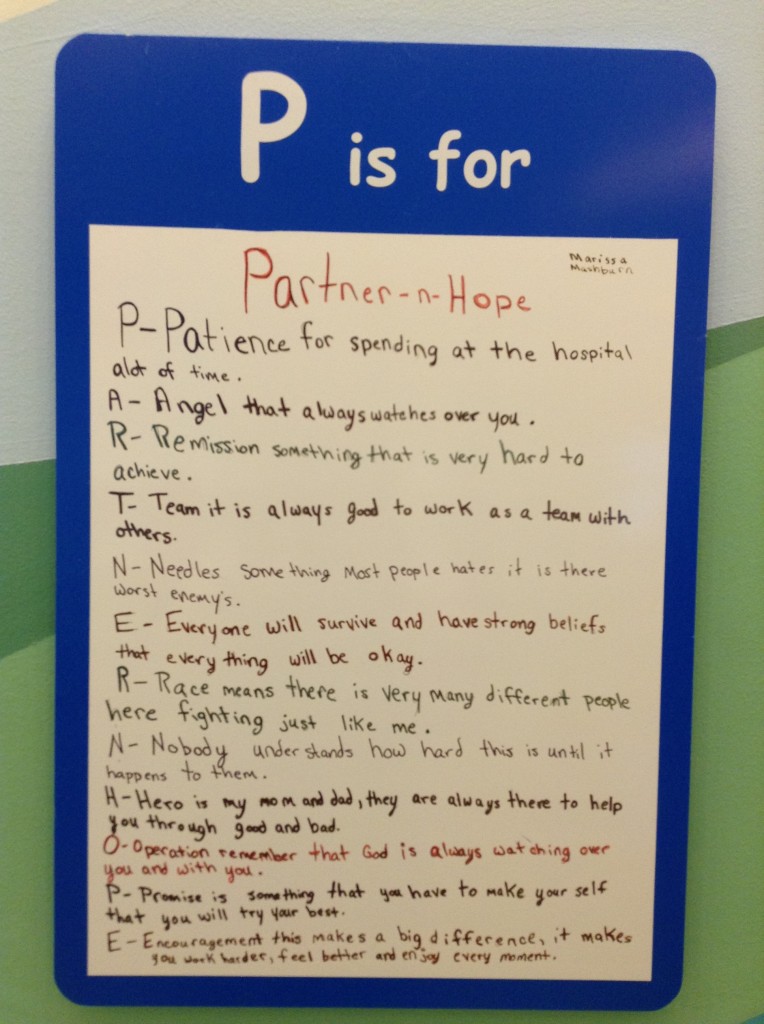 P is for
Marissa
Mashburn
Partner-n-Hope
P-Patience for spending at the hospital
alot of time.
A- Angel that always watches over you.
R- Remission something that is very hard to
achieve.
T- Team it is always good to work as a team with
others.
N- Needles something most people hates it is there
worst enemy's.
E - Everyone will survive and have strong beliefs
that every thing will be okay.
R- Race means there is very many different people
here fighting just like me.
N- Nobody understands how hard this is until it
happens to them.
H-Hero is my mom and dad, they are always there to help
you through good and bad.
O-Operation remember that God is always watching over
you and with you.
P- Promise is something that you have to make your self
that you will try your best.
E-Encouragement this makes a big difference, it makes
you work harder, feel better and enjoy every moment.